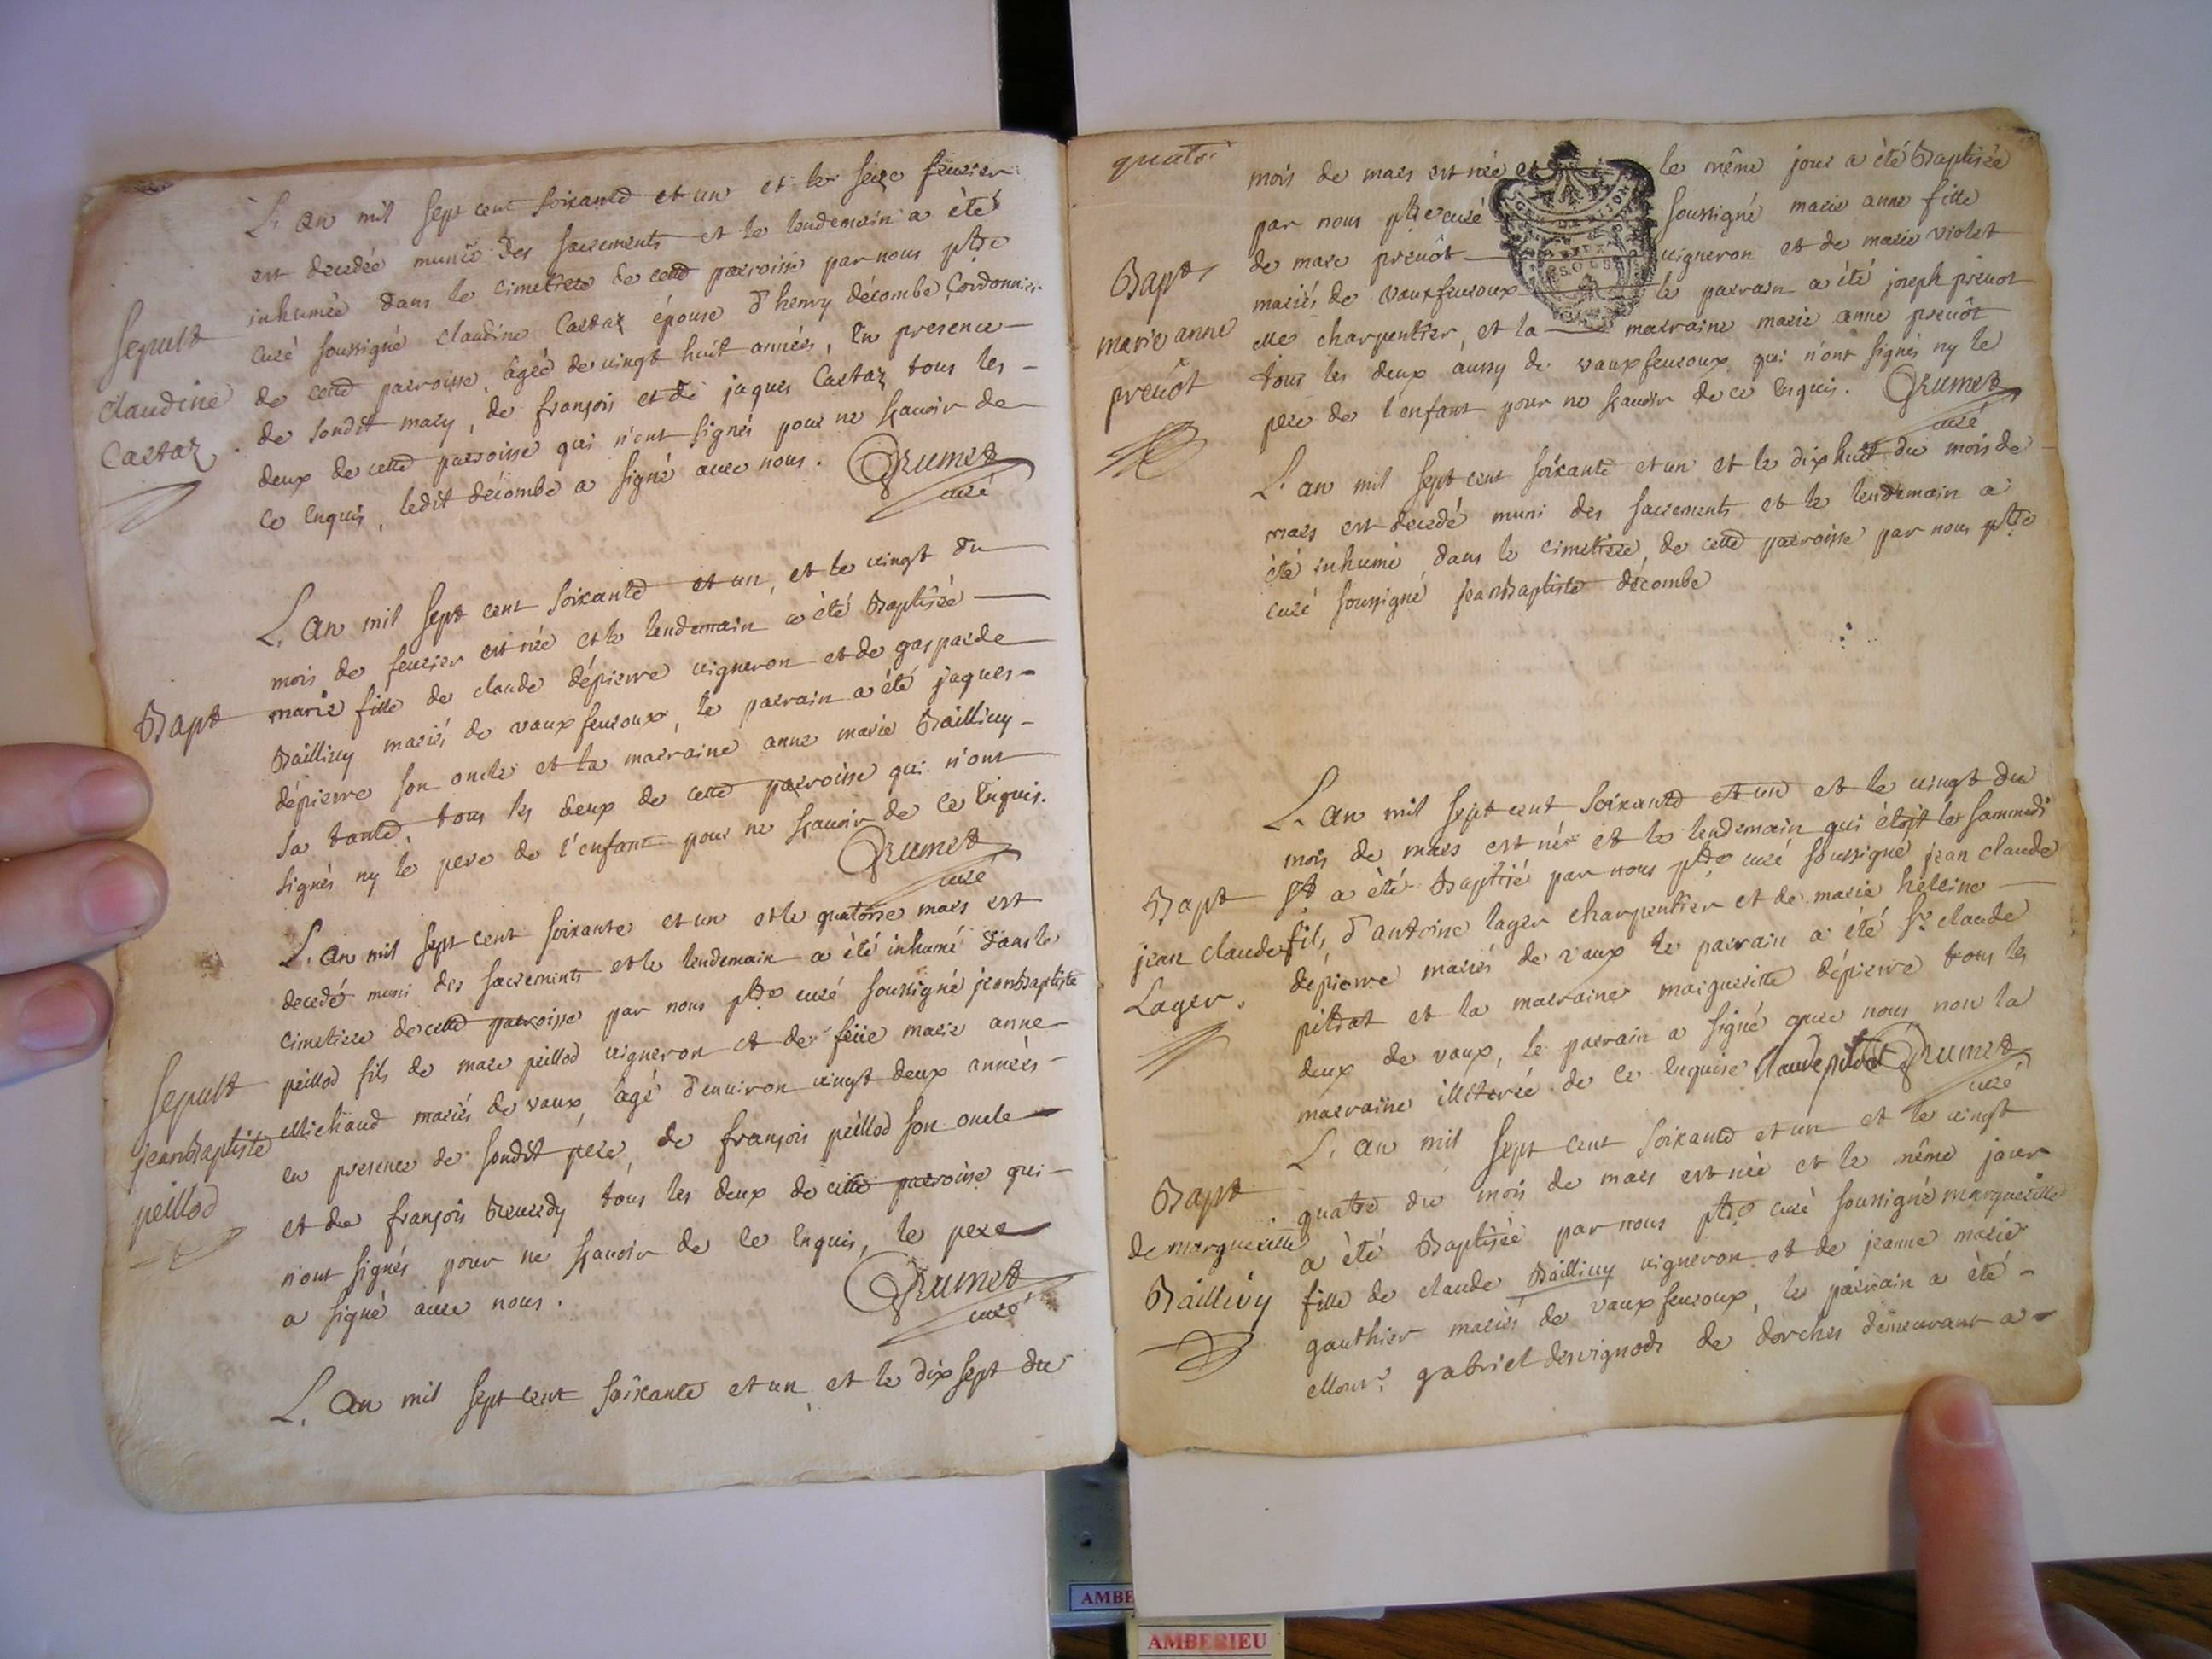 L'an mil sept cent soixante et un et le seize feurier
est decedée munie des sacrements et le lendemain a été
inhumée dans le cimetiere de cette parroisse par nous ptre
curé soussigné claudine Castaz épouse d'henry décombe Cordonnier
de cette parroisse, agée de vingt huit années, En presence
de sondit mary, de françois et de jaques Castaz tous les
deux de cette parroisse qui n'ont signés pour ne sçauoir de
ce Enquis, ledit décombe a signé auec nous. Grumet
curé
Sepult
claudine
Castaz.
L'an mil sept cent soixante et un, et le vingt du
mois de feurier est née et le lendemain a été Baptisée
marie fille de claude dépierre vigneron et de gasparde
Bailliuy mariés de vaux feuroux, le parrain a été jaques
dépierre son oncle et la marraine anne marie Bailliuy
sa tante, tous les deux de cette parroisse qui n'ont
signés ny le pere de l'enfant pour ne sçauoir de ce Enquis.
Grumet
curé
Bapt
L'an mil sept cent soixante et un et le quatorse mars est
decedé muni des sacrements et le lendemain a été inhumé dans le
cimetiere de cette parroisse par nous ptre curé soussigné jeanBaptiste
peillod fils de marc peillod vigneron et de feüe marie anne
Michaud mariés de vaux, agé d'enuiron vingt deux années
en presence de sondit pere, de françois peillod son oncle
et de françois tous les deux de cette parroisse qui
n'ont signés pour ne sçauoir de ce Enquis, le pere
a signé auec nous. Grumet
curé
Sepult
jeanBaptiste
peillod
L'an mil sept cent soixante et un, et le dix sept du
mois de mars est née et le même jour a été Baptisée
par nous ptre curé soussigné marie anne fille
de marc preuôt vigneron et de marie violet
mariés de vauxfeuroux le parrain a été joseph preuot
Me charpentier, et la marraine marie anne preuôt
tous les deux aussy de vauxfeuroux qui n'ont signés ny le
pere de l'enfant pour ne sçauoir de ce Enquis. Grumet
curé
Bapt
marie anne
preuôt
L'an mil sept cent soixante et un et le dix huit du mois de
mars est decedé muni des sacrements et le lendemain a
été inhumé dans le cimetiere de cette parroisse par nous ptre
curé soussigné jeanBaptiste décombe
L'an mil sept cent soixante et un et le vingt du
mois de mars est né et le lendemain qui étoit le sammedi
St a été Baptisé par nous ptre curé soussigné jean claude
fils d'antoine lager charpentier et de marie heleine
dépierre mariés de vaux le parrain a été Sr claude
pitrat et la marraine marguerite dépierre tous les
deux de vaux, le parrain a signé auec nous, non la
marraine illiterée de ce Enquise Claude pitrat Grumet
curé
Bapt
jean claude
Lager.
L'an mil sept cent soixante et un et le vingt
quatre du mois de mars est née et le même jour
a été Baptisée par nous ptre curé soussigné marguerite
fille de claude Bailliuy vigneron et de jeanne marie
gauthier mariés de vaux feuroux, le parrain a été
gabriel desvignods de dorches demeurant a
Bapt
de marguerite
Bailliuy
AMBE
AMBERIEU